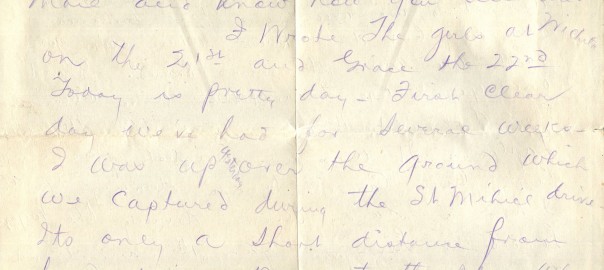 more and know how you
I Wrote The girls at
on The 21st and Grace the 22nd
Today is pretty day - First Clear
day we've had for severe weeks -
I was up yesterday over the ground which
we Captured during the St Mihiel drive -
Its only a Short distance from